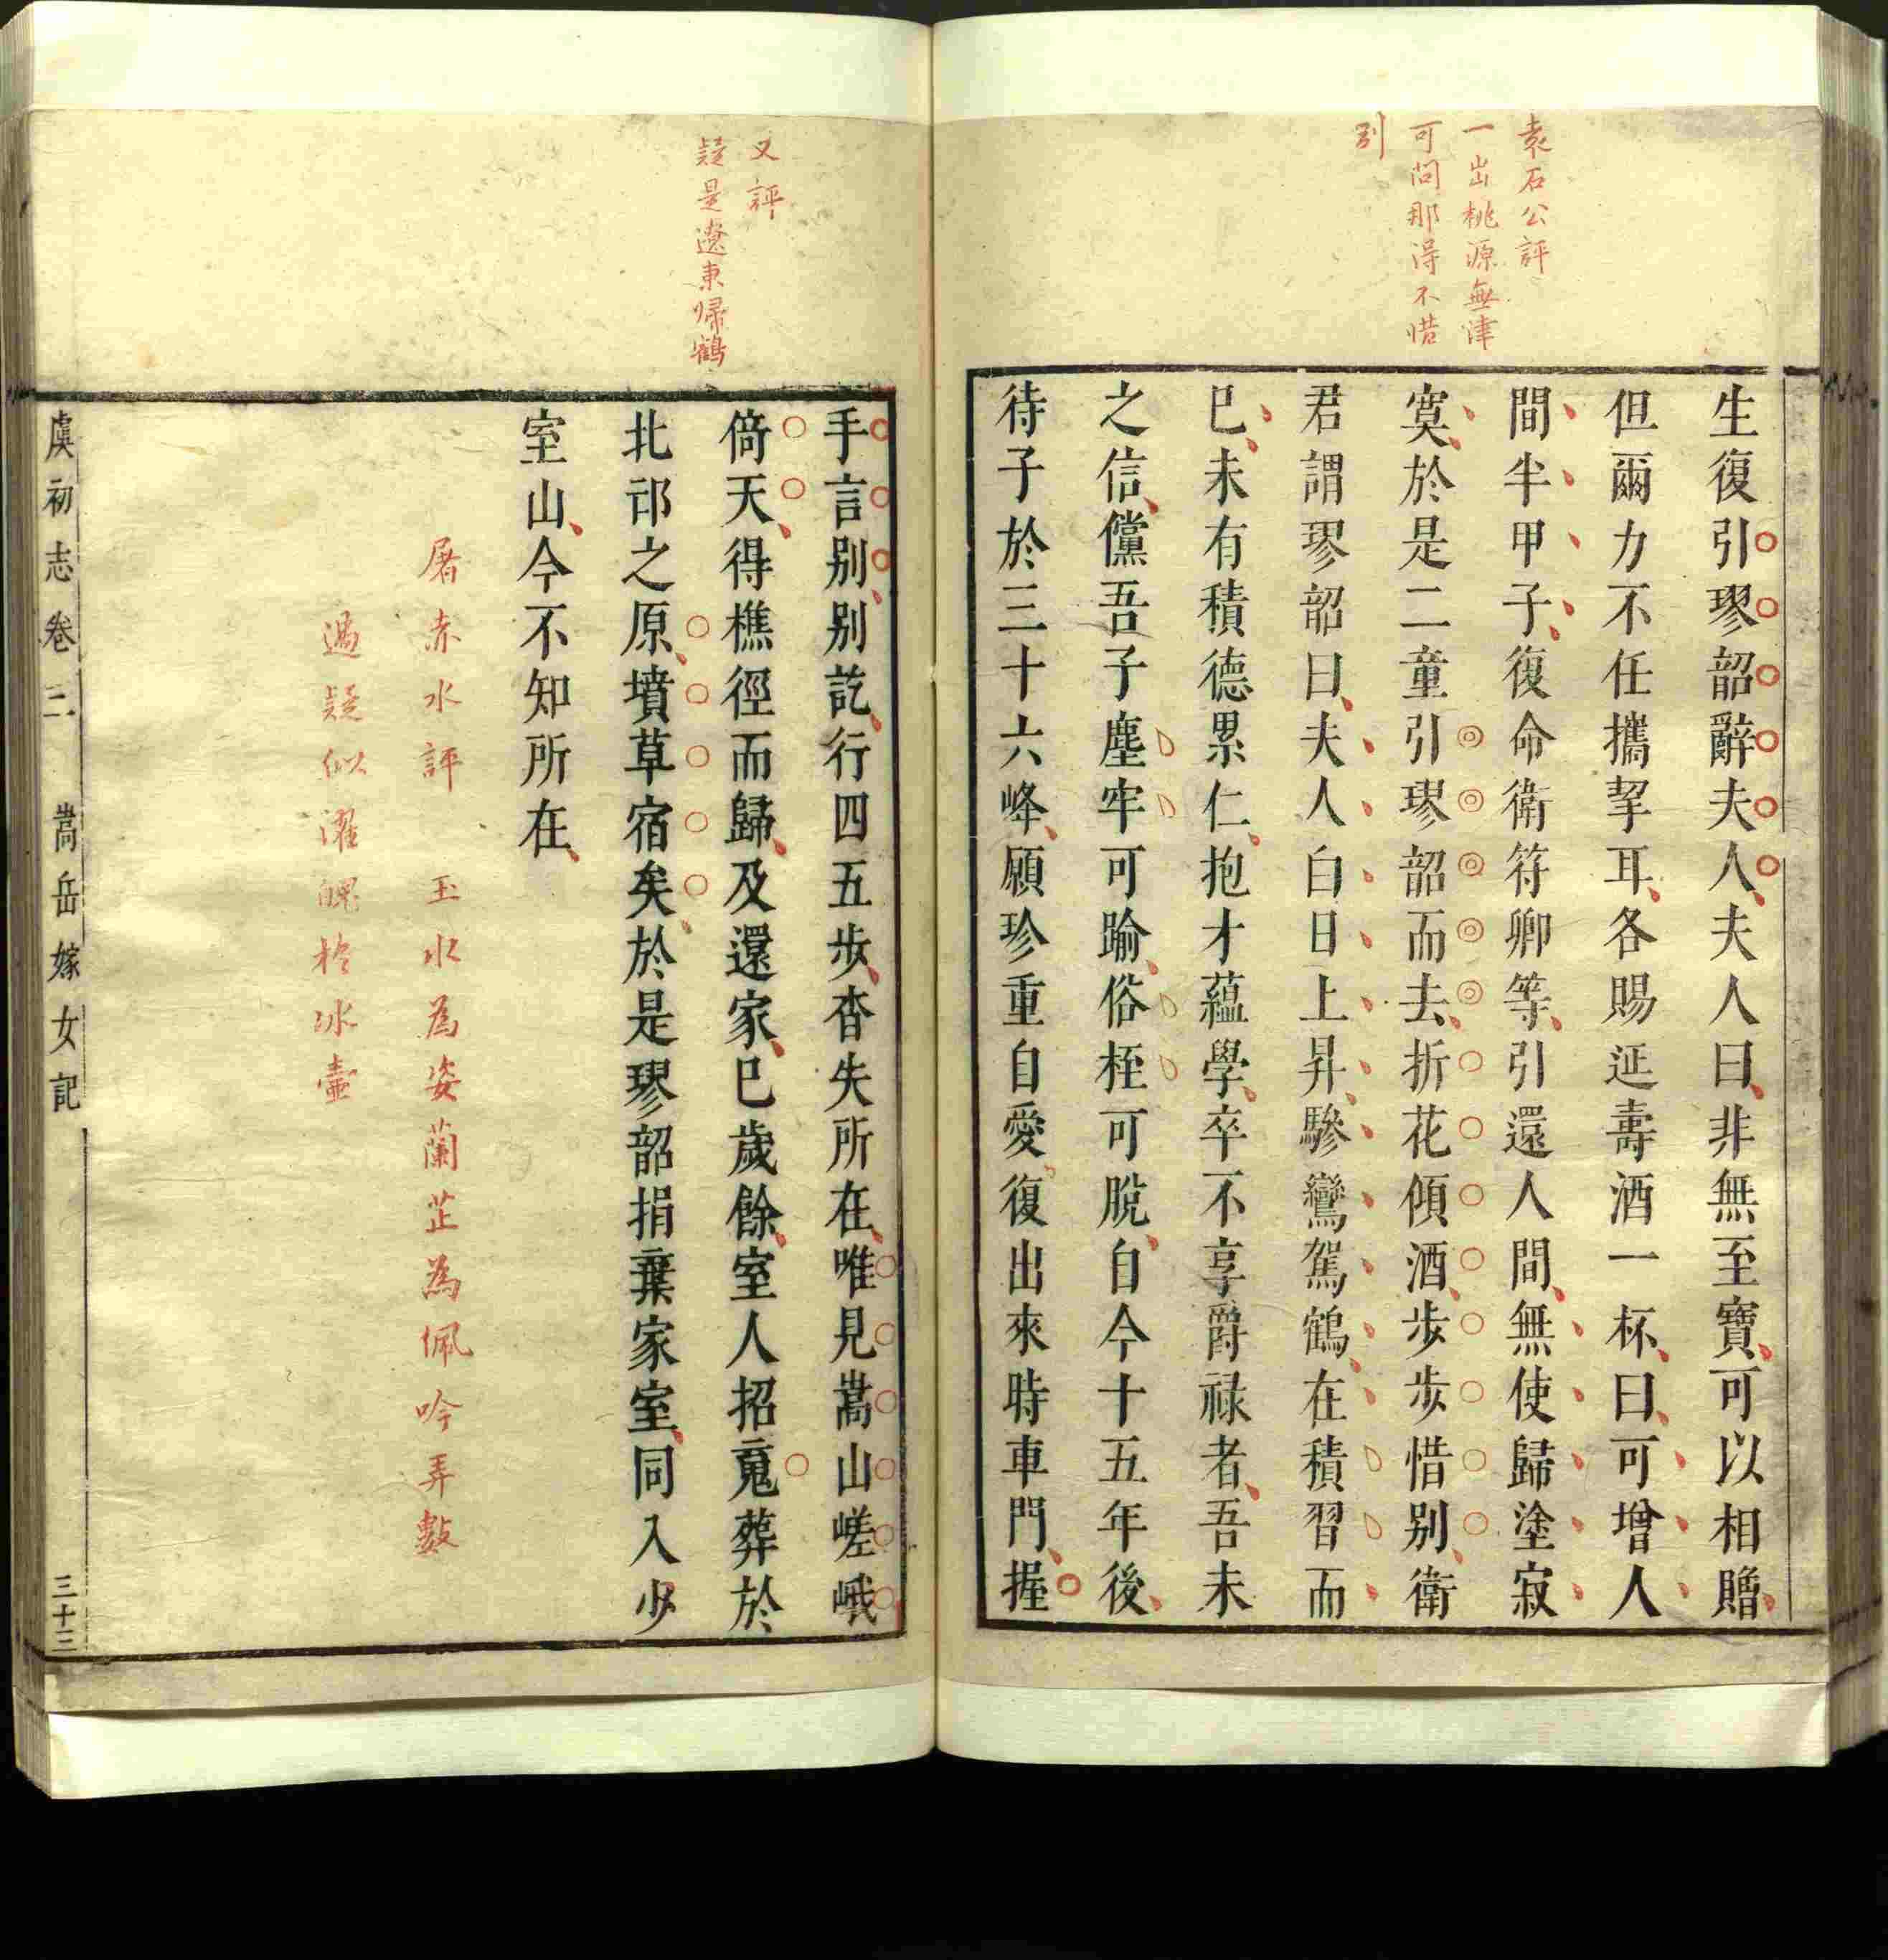 袁石公評
一出桃源無津
可問那得不惜
別
生復引璆韶辭夫人夫人曰非無至寶可以相贈
但爾力不任攜挈耳各賜延壽酒一杯曰可增人
間半甲子復命衛符卿等引還人間無使歸塗寂
寞於是二童引璆韶而去折花傾酒步步惜別衛
君謂璆韶曰夫人白日上昇驂鸞駕鶴在積習而
已未有積德累仁抱才蘊學卒不享爵祿者吾未
之信儻吾子塵牢可踰俗桎可脫自今十五年後
待子於三十六峰願珍重自愛復出來時車門握
又評
疑是遼東歸鶴
手言別別訖行四五步杳失所在唯見嵩山嵯峨
倚天得樵徑而歸及還家已歲餘室人招䰟葬於
北邙之原墳草宿矣於是璆韶捐棄家室同入少
室山今不知所在
屠赤水評 玉水為姿蘭芷為佩吟弄數
過疑似濯魄於冰壺
虞初志卷二 嵩岳嫁女記 三十三